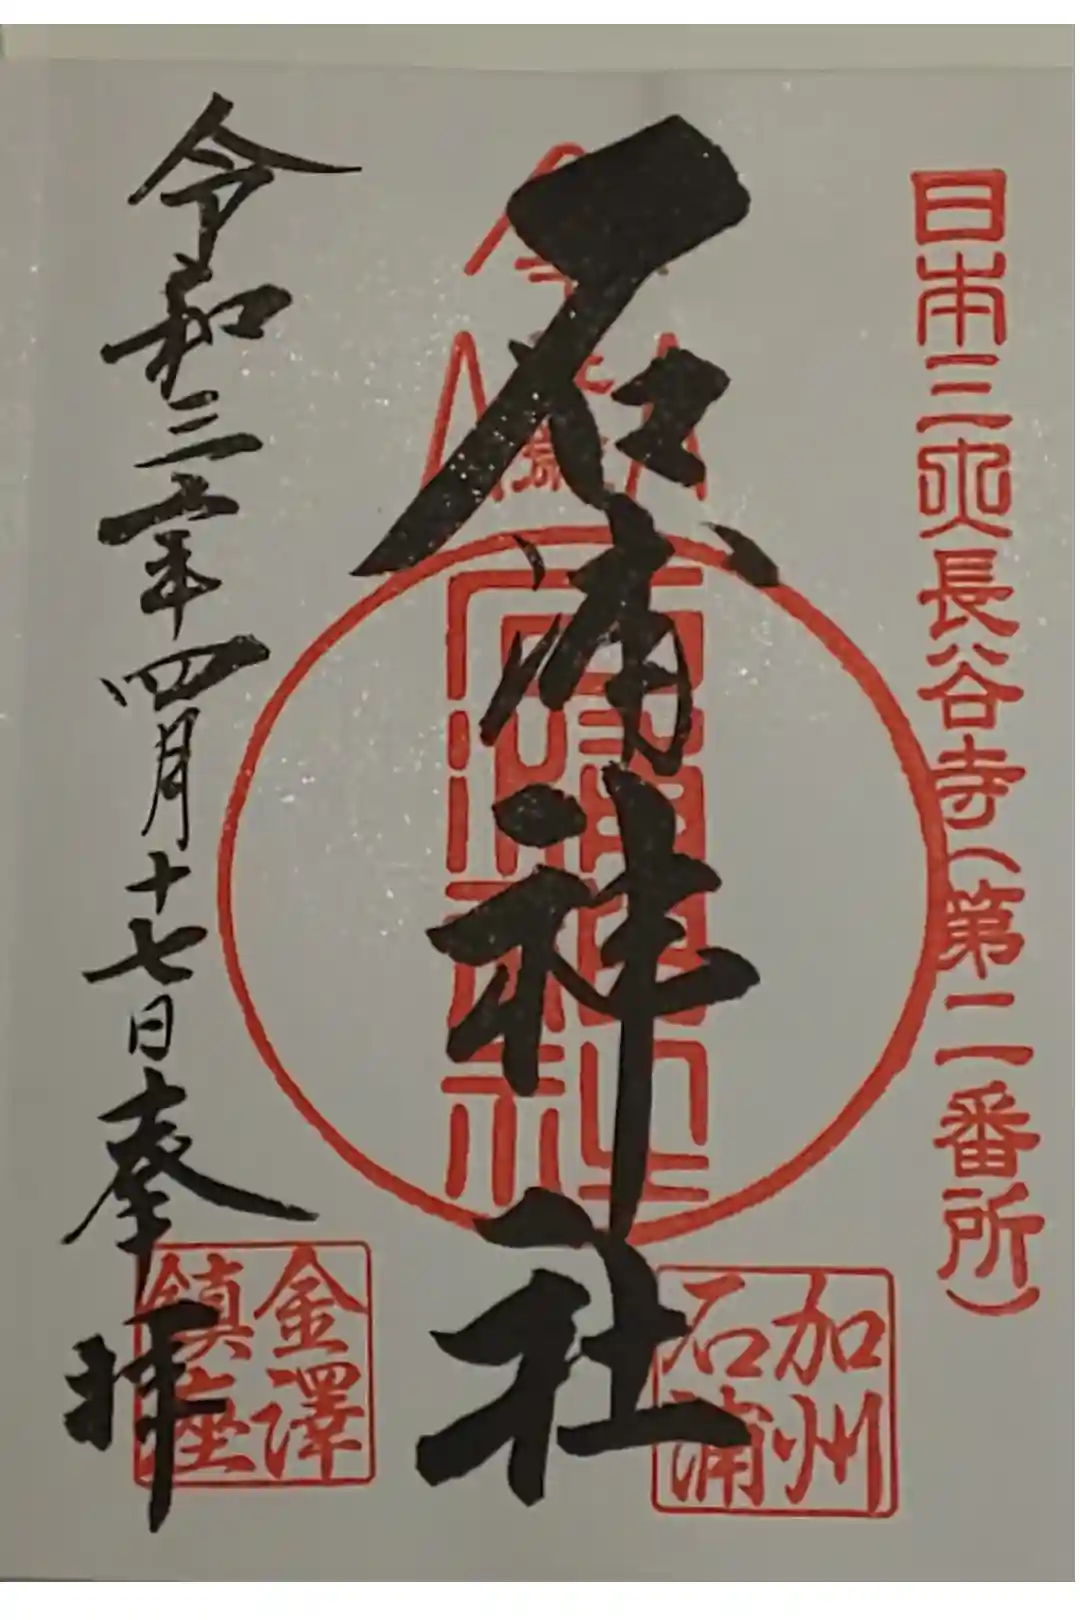 日本三大長谷寺（第二番所）
加州
石浦
石浦神社
石浦神社
令和三年四月十七日奉拝
金澤
鎮座